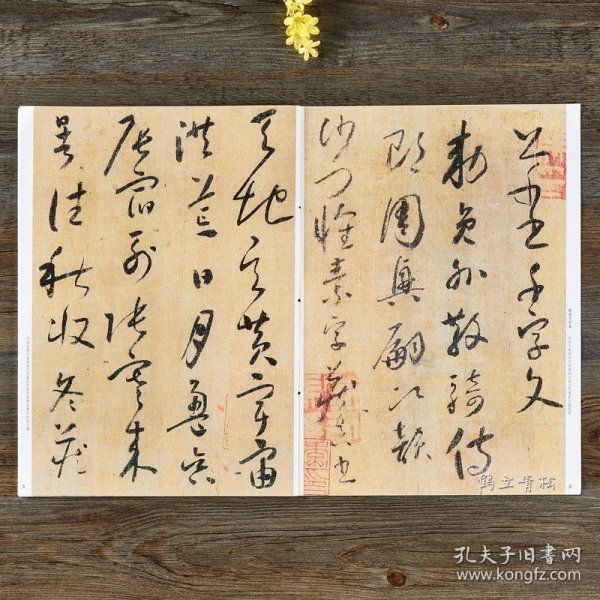 草書千字文
勅員外散騎侍
郎周興嗣次韻
沙門懷素字藏真書
天地玄黃宇宙
洪荒日月盈昃
辰宿列張寒來
暑往秋收冬藏
鹤立青松
孔夫子旧书网
www.kongfz.com